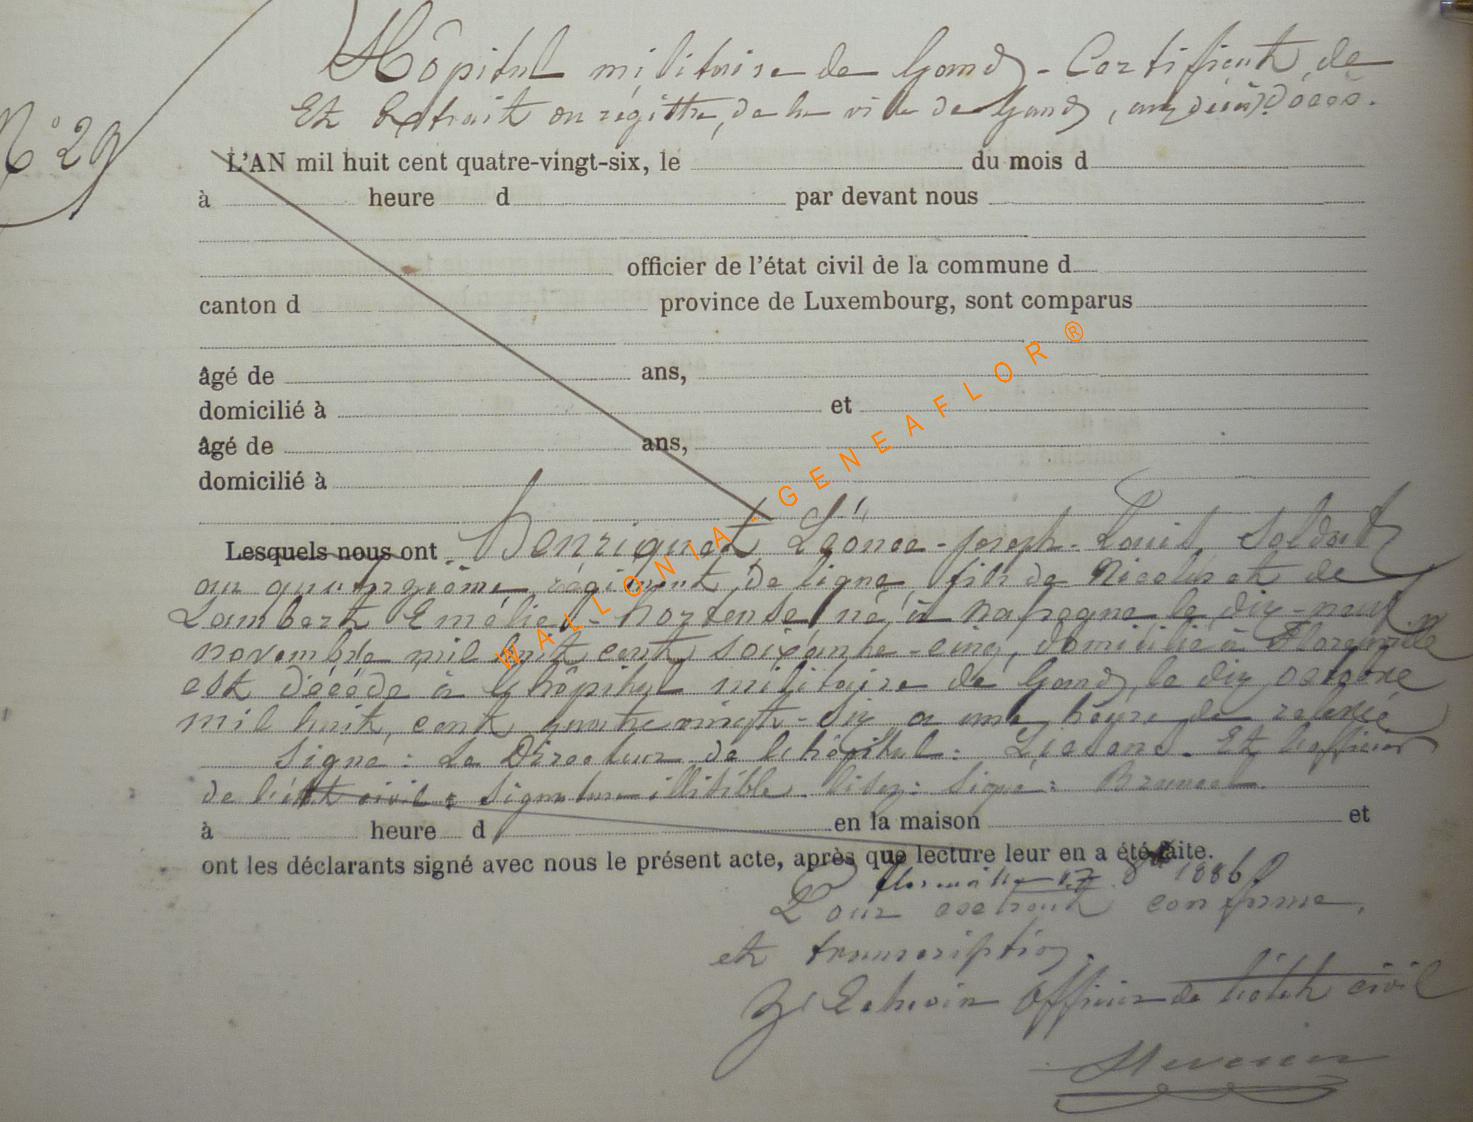 Hôpital militaire de Gand - Certificat de
Et Extrait du régistre, de la ville de Gand, aux décès.
N° 29
L'AN mil huit cent quatre-vingt-six, le du mois d
à heure d par devant nous
officier de l'état civil de la commune d
canton d province de Luxembourg, sont comparus
âgé de ans,
domicilié à et
âgé de ans,
domicilié à
Lesquels nous ont Henriquet Léonce-Joseph-Louis, Soldat
au quatorzième régiment de ligne, fils de Nicolas et de
Lambert Emélie-Hortense, né à Nafragne le dix-neuf
novembre mil huit cent soixante-cinq, domicilié à Florenville
est décédé à l'hôpital militaire de Gand, le dix octobre
mil huit cent quatre vingt-six à une heure de relevée
Signé: Le Directeur de l'hôpital: Et l'officier
de l'état civil: signature illisible lisez: signé:
à heure d en la maison et
ont les déclarants signé avec nous le présent acte, après que lecture leur en a été faite.
Florenville 17 8bre 1886
Pour extrait conforme,
et transcription.
L'Echevin Officier de l'état civil
WALLONIA-GENEAFLOR®